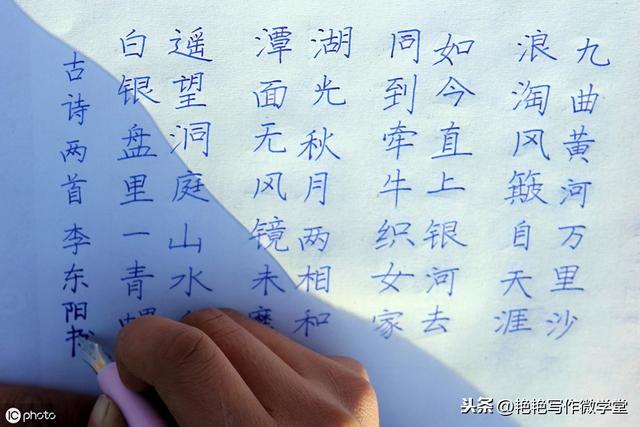 九曲黄河万里沙
浪淘风簸自天涯
如今直上银河去
同到牵牛织女家
湖光秋月两相和
潭面无风镜未磨
遥望洞庭山水
白银盘里一青螺
古诗两首李东阳书
iC photo
头条 @艳艳写作微学堂